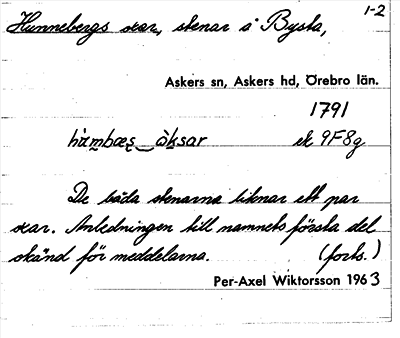 1-2
Hunnebergs oxar, stenar å Bysta,
Askers sn, Askers hd, Örebro län.
1791
ek 9F8g
De båda stenarna liknar ett par
oxar. Anledningen till namnets första del
okänd för meddelarna. (forts.)
Per-Axel Wiktorsson 1963